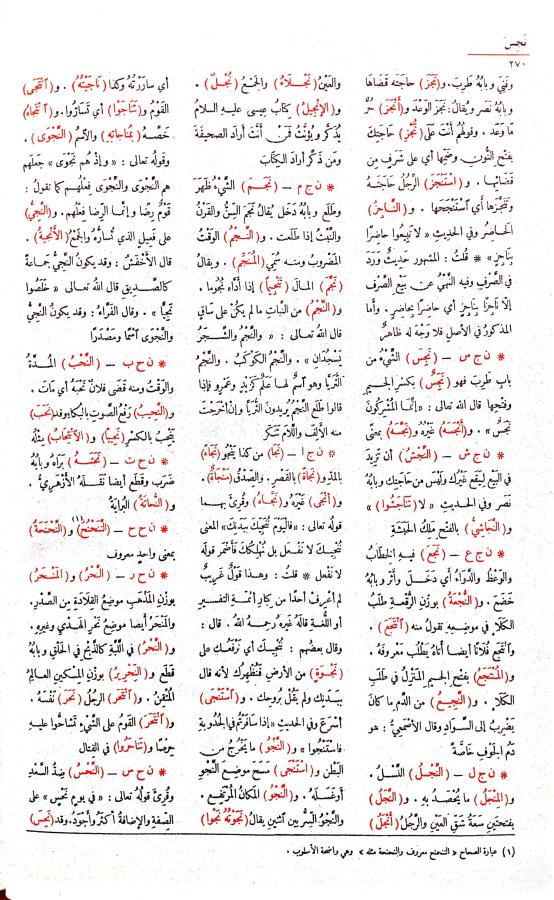 نَجِسَ
٢٧٠
وفَنِيَ وبابُه طَرِبَ. و(نَجَزَ) حاجَتَه قَضَاها
وبابُه نَصَر ويُقالُ: نَجَزَ الوَعْدَ و(أَنْجَزَ) حُرٌّ
ما وَعَدَ. وقولُهم أَنْتَ على (نُجْزِ) حاجَتِكَ
بفتح النُّون وضَمِّها أي على شَرَفٍ مِن
قَضَائِها. و(اسْتَنْجَزَ) الرَّجُلُ حاجَتَه
وتَنَجَّزَها أي اسْتَنْجَحَها. و(النَّاجِزُ)
الحَاضِرُ وفي الحديثِ «لا تَبِيعوا حاضِرًا
بِنَاجِزٍ» * قُلْتُ: المشهور حديثٌ وَرَدَ
في الصَّرْفِ وفيه النَّهْيُ عن بَيْعِ الصَّرْفِ
إلّا نَاجِزًا بِنَاجِزٍ أي حاضِرًا بحاضِرٍ. وأما
المذكورُ في الأصلِ فلا وَجْهَ له ظاهِرٌ
* ن ج س – (نَجِسَ) الشَّيْءُ من
بابِ طَرِبَ فهو (نَجِسٌ) بكسْرِ الجيمِ
وفتحِها قال اللهُ تعالى: «إنَّما المُشْرِكُونَ
نَجَسٌ». و(أَنْجَسَهُ) غَيْرُه و(نَجَّسَهُ) بمعنًى
* ن ج ش – (النَّجْشُ) أن تَزِيدَ
في البيعِ لِيَقَعَ غَيْرُك وليس من حاجَتِك وبابُه
نَصَر وفي الحديثِ «لا (تَنَاجَشُوا)»
و(النَّجَاشِيُّ) بالفتح مَلِكُ الحَبَشَةِ
* ن ج ع – (نَجَعَ) فيه الخِطَابُ
والوَعْظُ والدَّوَاءُ أي دَخَلَ وأَثَّرَ وبابُه
خَضَعَ. و(النُّجْعَةُ) بوزن الرُّقْعَةِ طَلَبُ
الكَلَإِ في مَوْضِعِه تقولُ منه (انْتَجَعَ).
وانْتَجَعَ فُلانًا أيضا أتاهُ يَطْلُبُ مَعْرُوفَه.
و(المُنْتَجَعُ) بفتح الجيمِ المَنْزِلُ في طَلَبِ
الكَلَإِ. و(النَّجِيعُ) من الدَّمِ ما كانَ
يَضْرِبُ إلى السَّوَادِ وقال الأَصْمَعِيُّ: هو
دَمُ الجَوْفِ خاصَّةً
* ن ج ل – (النَّجْلُ) النَّسْلُ.
و(المِنْجَلُ) ما يُحْصَدُ به. و(النَّجَلُ)
بفتحتين سَعَةُ شَقِّ العَيْنِ والرَّجُلُ (أَنْجَلُ)
والعَيْنُ (نَجْلَاءُ) والجَمْعُ (نُجْلٌ).
و(الإِنْجِيلُ) كِتابُ عِيسى عليه السلامُ
يُذَكَّرُ ويُؤَنَّثُ فمَنْ أَنَّثَ أرادَ الصحيفةَ
ومَن ذَكَّر أرادَ الكِتَابَ
* ن ج م – (نَجَمَ) الشَّيْءُ ظَهَرَ
وطَلَعَ وبابُه دَخَل يُقالُ نَجَمَ السِّنُّ والقَرْنُ
والنَّبْتُ إذا طَلَعت. و(النَّجْمُ) الوَقْتُ
المَضْرُوبُ ومنه سُمِّيَ (المُنَجِّمُ). ويقالُ
(نَجَّمَ) المالَ (تَنْجِيمًا) إذا أَدَّاه نُجُومًا.
و(النَّجْمُ) من النَّباتِ ما لم يكنْ على ساقٍ
قال الله تعالى: «والنَّجْمُ والشَّجَرُ
يَسْجُدَانِ». والنَّجْمُ الكَوْكَبُ. والنَّجْمُ
الثُّرَيَّا وهو اسْمٌ لها عَلَمٌ كزَيْدٍ وعَمْرٍو فإذا
قالوا طَلَعَ النَّجْمُ يُرِيدونَ الثُّرَيَّا وإنْ أَخْرَجْتَ
منه الأَلِفَ واللَّامَ تَنَكَّرَ
* ن ج ا – (نَجَا) من كذا يَنْجُو (نَجَاءً)
بالمَدِّ و(نَجَاةً) بالقَصْرِ. والصِّدْقُ (مَنْجَاةٌ).
و(أَنْجَى) غَيْرَه و(نَجَّاه) وقُرِئَ بهما
قوله تعالى: «فالْيَوْمَ نُنَجِّيكَ بِبَدَنِكَ» المعنى
نُنَجِّيكَ لا نَفْعَل بل نُهْلِكُكَ فأَضْمَر قولَه
لا نَفْعَل * قلتُ: وهذا قولٌ غَرِيبٌ
لم أَعْرِف أحَدًا من كِبَارِ أئِمَّةِ التفسيرِ
أو اللُّغَةِ قالَه غَيْرَه رحِمَهُ اللهُ. قال
وقال بعضُهم: نُنَجِّيكَ أي نَرْفَعُكَ على
(نَجْوَةٍ) من الأرضِ فنُظْهِرُك لأنه قال
بِبَدَنِكَ ولم يَقُلْ بِرُوحِكَ. و(اسْتَنْجَى)
أَسْرَعَ وفي الحديثِ «إذا سافَرْتُمْ في الجُدُوبَةِ
فاسْتَنْجُوا» و(النَّجْوُ) ما يَخْرُجُ من
البَطْنِ و(اسْتَنْجَى) مَسَحَ مَوْضِعَ النَّجْوِ
أو غَسَلَهُ. و(النَّجْوُ) المَكانُ المُرْتَفِعُ.
والنَّجْوُ السِّرُّ بين اثْنَيْنِ يقالُ (نَجَوْتُهُ نَجْوًا)
أي سارَرْتُه وكذا (نَاجَيْتُهُ). و(انْتَجَى)
القَوْمُ و(تَنَاجَوْا) أي تَسارُّوا. و(انْتَجَاهُ)
خَصَّهُ (بمُنَاجاتِهِ) والاسْمُ (النَّجْوَى).
وقولُه تعالى: «وإذْ هُم نَجْوَى» جَعَلَهم
هم النَّجْوَى والنَّجْوَى فِعْلُهم كما تقولُ:
قَوْمٌ رِضًا وإنَّما الرِّضا فِعْلُهم. و(النَّجِيُّ)
على فَعِيلٍ الذي تُسَارُّه والجَمْعُ (الأَنْجِيَةُ).
قال الأَخْفَشُ: وقد يكونُ النَّجِيُّ جَماعةً
كالصَّدِيقِ قال اللهُ تعالى «خَلَصُوا
نَجِيًّا». وقال الفَرَّاءُ: وقد يكونُ النَّجِيُّ
والنَّجْوَى اسْمًا ومَصْدَرًا
* ن ح ب – (النَّحْبُ) المُدَّةُ
والوَقْتُ ومنه قَضَى فلانٌ نَحْبَهُ أي ماتَ.
و(النَّحِيبُ) رَفْعُ الصَّوْتِ بالبُكاءِ وقد (نَحَبَ)
يَنْحِبُ بالكسْرِ (نَحِيبًا) و(الانْتِحَابُ) مِثْلُه
* ن ح ت – (نَحَتَهُ) بَرَاهُ وبابُه
ضَرَبَ وقَطَعَ أيضا نَقَلَه الأَزْهَرِيُّ.
و(النُّحَاتَةُ) البُرَايَةُ
* ن ح ح – (النَّحْنَحُ) و(النَّحْنَحَةُ)(١)
بمعنى واحدٍ معروف
* ن ح ر – (النَّحْرُ) و(المَنْحَرُ)
بوَزنِ المَذْهَبِ مَوْضِعُ القِلادَةِ مِن الصَّدْرِ.
والمَنْحَرُ أيضا مَوْضِعُ نَحْرِ الهَدْيِ وغيرِه.
و(النَّحْرُ) في اللَّبَّةِ كالذَّبْحِ في الحَلْقِ وبابُه
قَطَعَ و(النِّحْرِيرُ) بوَزنِ المِسْكينِ العالِمُ
المُتْقِنُ. و(انْتَحَرَ) الرجُلُ (نَحَرَ) نَفْسَه.
و(انْتَحَرَ) القَوْمُ على الشَّيْءِ تَشَاحُّوا عليه
حِرْصًا و(تَنَاحَرُوا) في القِتالِ
* ن ح س – (النَّحْسُ) ضِدُّ السَّعْدِ
وقُرِئَ قولُه تعالى: «في يومِ نَحْسٍ» على
الصِّفَةِ والإضافةِ أكثَرُ وأَجْوَدُ. وقد (نَحِسَ)
(١) عبارة الصحاح «التنحنح معروف والنحنحة مثله» وهي واضحة الأسلوب.